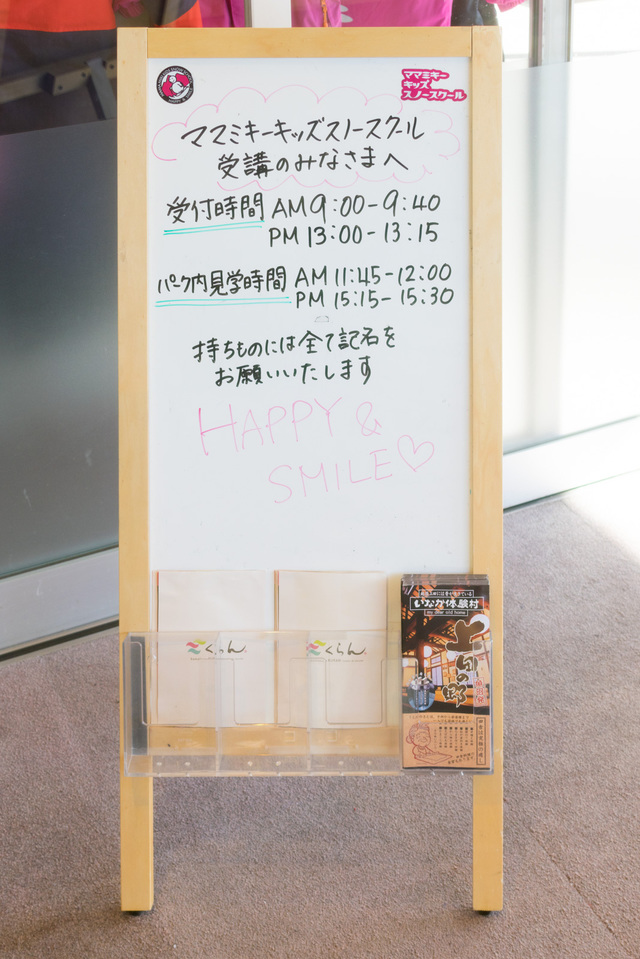 ママミキー
キッズ
スノースクール
ママミキーキッズスノースクール
受講のみなさまへ
受付時間 AM 9:00-9:40
PM 13:00-13:15
パーク内見学時間 AM 11:45-12:00
PM 15:15-15:30
持ちものには全て記名を
お願いいたします
HAPPY &
SMILE♡
くらん
くらん
いなか体験村